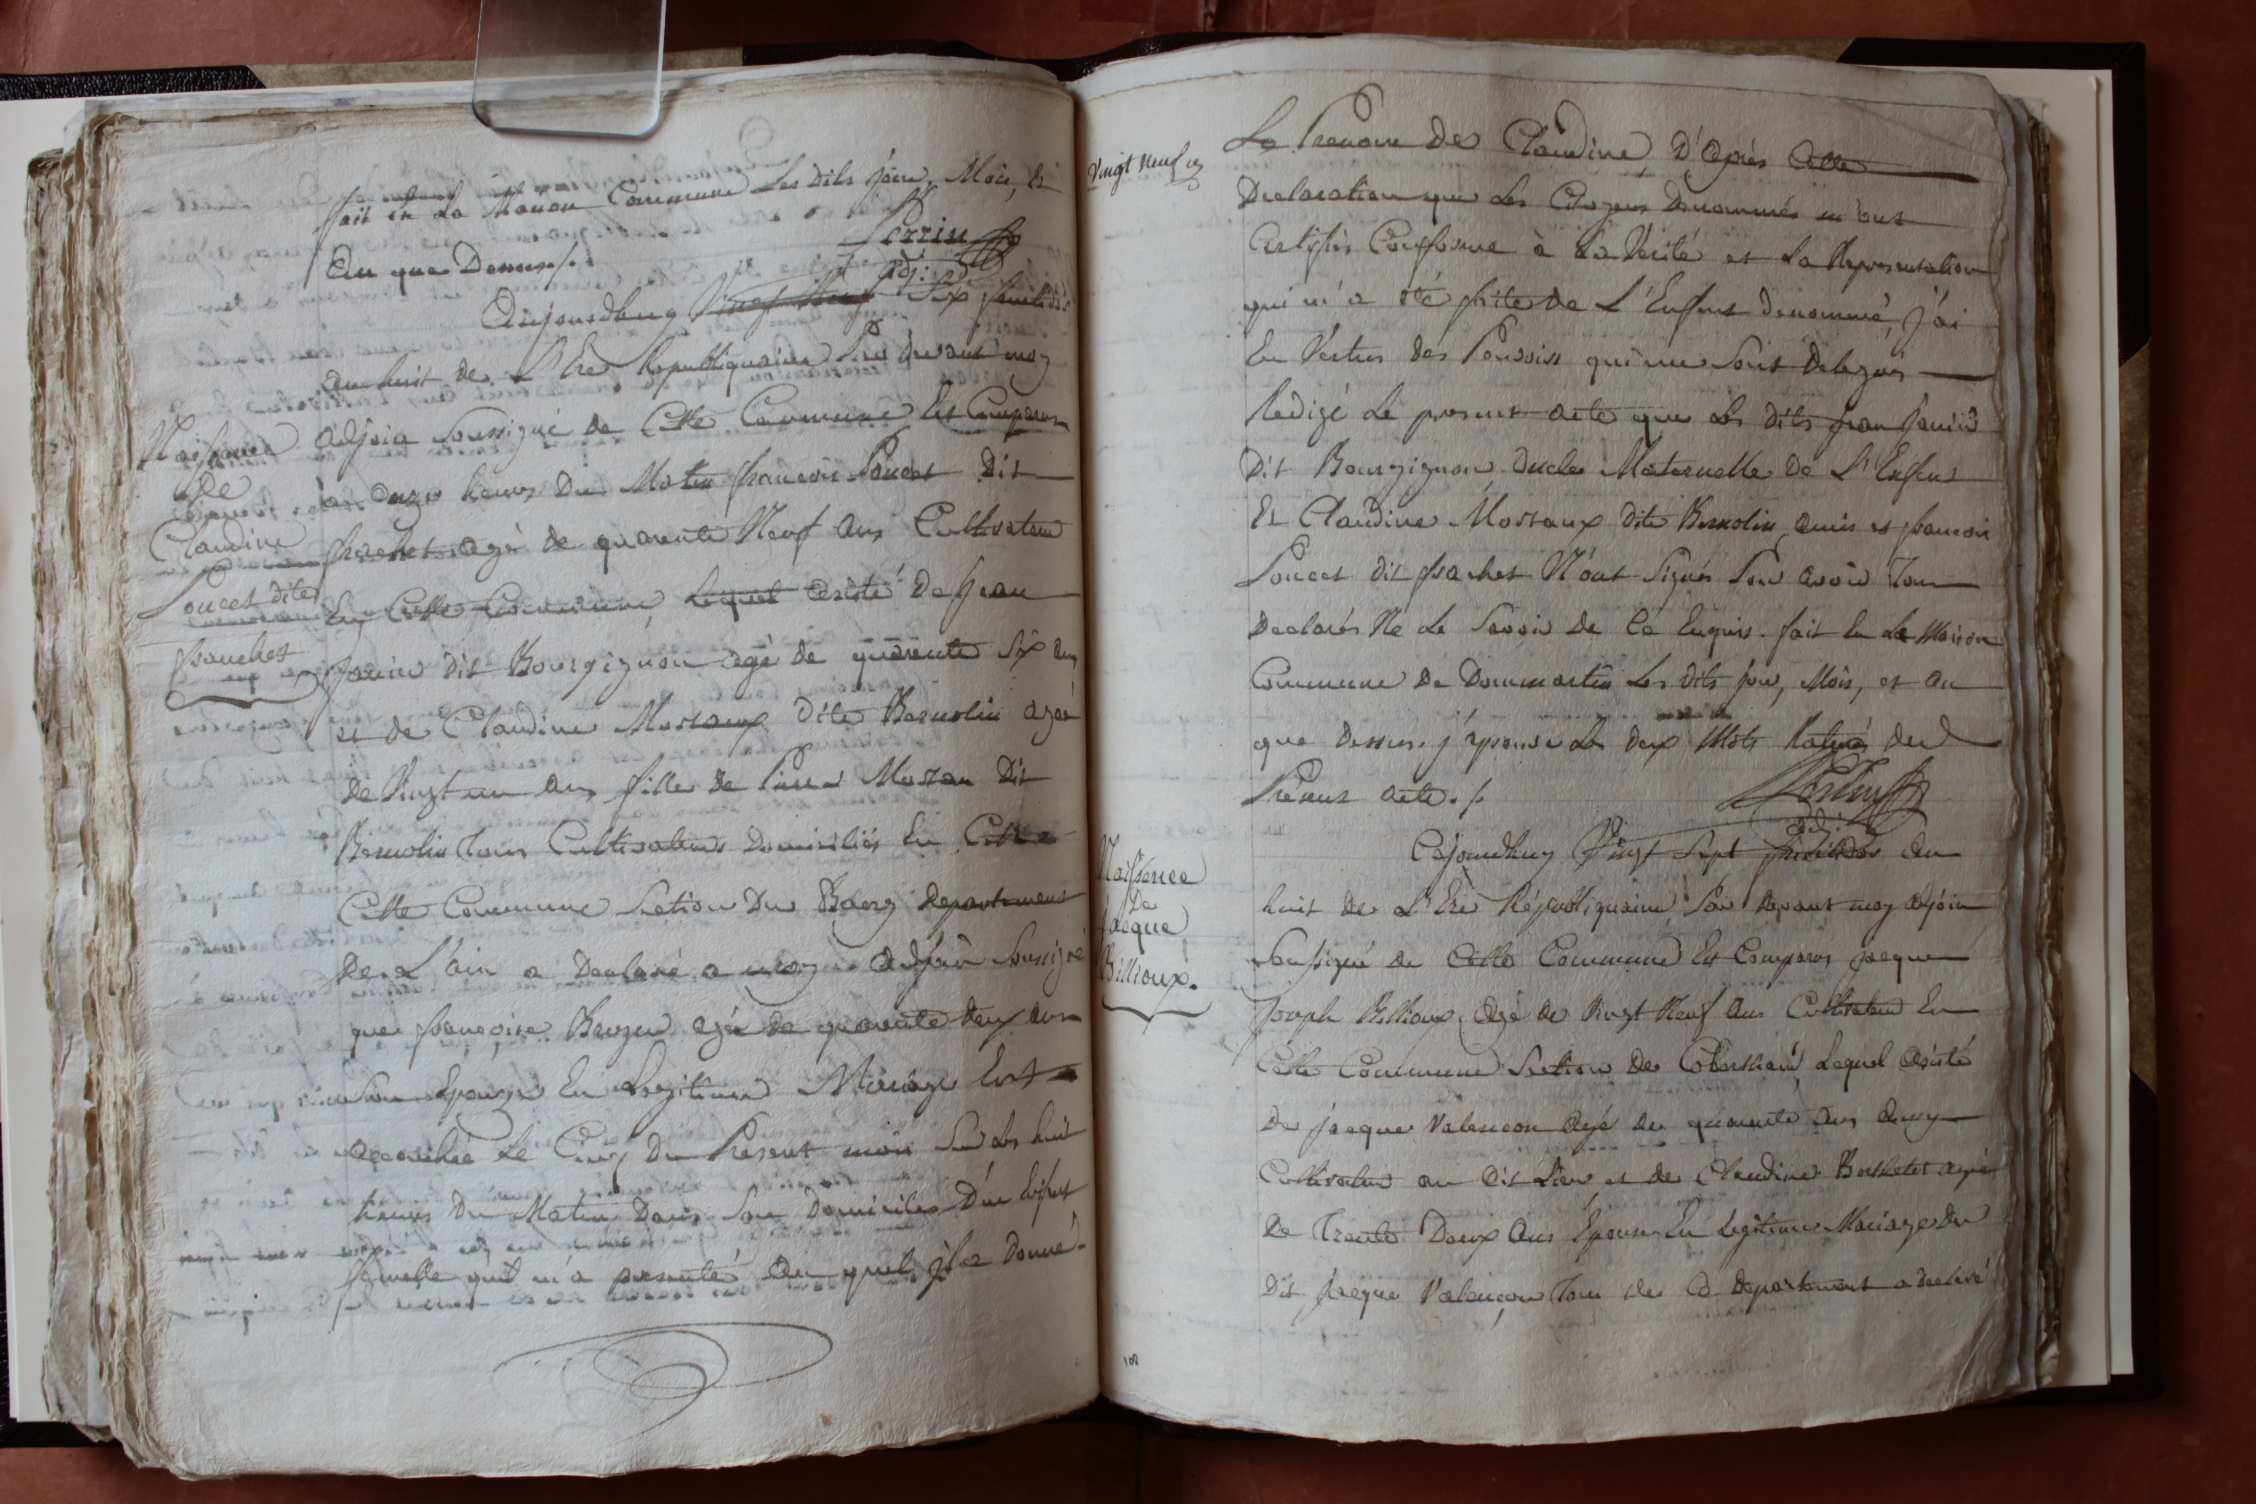 fait en La Maison Commune Les dits jour, Mois, et
An que Dessus ./.
Perrin
adj:
Aujourdhuy Vingt Neuf Six fructidor
an huit de L'Ere Republiquaine Par devant moy
Adjoin Soussigné de Cette Commune Est Comparu
à onze heures Du Matin françois Poncet Dit
agé de quarente Neuf Ans Cultivateur
En Cette Commune, Lequel Asisté De Jean
Janin dit Bourgignon agé de quarente Six ans
et de Claudine Morraux Dite Bernolin agée
de Vingt un ans fille de Pierre Dit
Bernolin Tous Cultivateurs Domiciliés En Cette
Cette Commune Section Du Bourg Departement
De L'ain a Declaré a moy Adjoin Soussigné
que françoise agée de quarente deux ans
Son Epouze En Legitime Mariage Est
accouchée Le Cinq Du Present mois Sur Les huit
heures Du Matin Dans Son Domicile D'un Enfant
femelle qu'il m'a presenté Au quel j'l a Donné
Naissance
De
Claudine
Poncet dite
Vingt Neuf
Le Prenom De Claudine D'Après Cette
Declaration que Les Citoyens Denommés m'ont
Certifiés Conforme à La Verité et La Representation
qui m'a été faite de L'Enfant denommé, j'ai
En Vertus des Pouvoirs qui me Sont delegués
Redigé Le present acte que Les dits Jean Janin
Dit Bourgignon Oncle Maternelle de L'Enfant
Et Claudine Morraux dite Bernolin amis et françois
Poncet dit N'ont Signés Pour avoir Tous
Declarés Ne Le Savoir De Ce Enquis. fait En La Maison
Commune De Dommartin Les dits jour, Mois, et an
que Dessus. j'éprouve Les deux Mots Raturés du
Présent acte ./.
Perrin
adj:
Cejourdhuy Vingt Sept fructidor An
huit de L'Ere Républiquaine Par devant moy Adjoin
Soussigné de Cette Commune Est Comparu Jacque
Joseph Billioux Agé de Vingt Neuf Ans Cultivateur En
Cette Commune Section De Lequel Asisté
De Jacque Valençon Agé de quarente ans
Cultivateur au Dit Lieu et de Claudine Berthelet agé
De Trente Deux Ans Epouse En Legitime Mariage Du
Dit Jacque Valençon Tous De Ce Departement a declaré
Naissence
De
Jacque
Billioux.